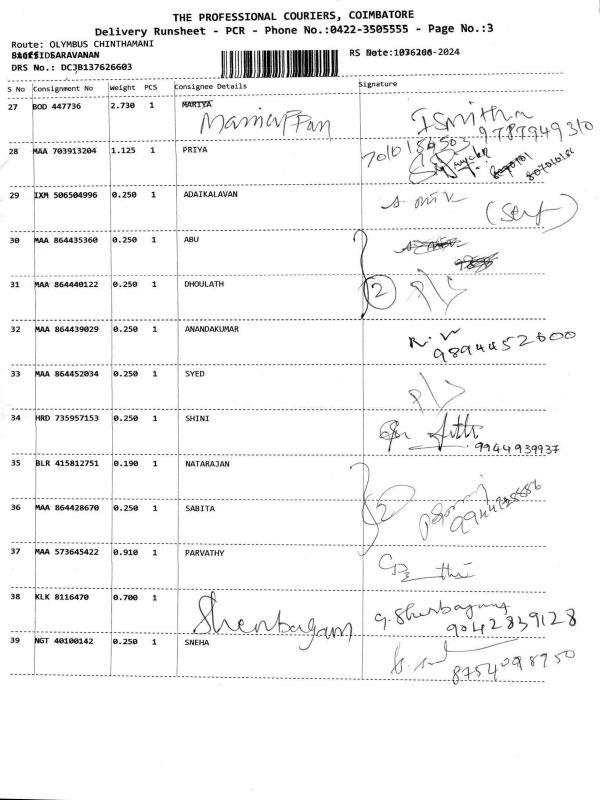 THE PROFESSIONAL COURIERS, COIMBATORE
Delivery Runsheet - PCR - Phone No.:0422-3505555 - Page No.:3
Route: OLYMBUS CHINTHAMANI
SARAVANAN RS Date: -2024
DRS No.: DCJB137626603
S No Consignment No Weight PCS Consignee Details Signature
27 BOD 447736 2.730 1 MARIYA
I Smitha
9787949310
28 MAA 703913204 1.125 1 PRIYA
7010154503
29 IXM 506504996 0.250 1 ADAIKALAVAN
(Self)
30 MAA 864435360 0.250 1 ABU
31 MAA 864440122 0.250 1 DHOULATH
2
32 MAA 864439029 0.250 1 ANANDAKUMAR
9894452600
33 MAA 864452034 0.250 1 SYED
34 HRD 735957153 0.250 1 SHINI
9944939937
35 BLR 415812751 0.190 1 NATARAJAN
36 MAA 864428670 0.250 1 SABITA
2
37 MAA 573645422 0.910 1 PARVATHY
38 KLK 8116470 0.700 1 Shenbagam
9042839128
39 NGT 40100142 0.250 1 SNEHA
8754098950